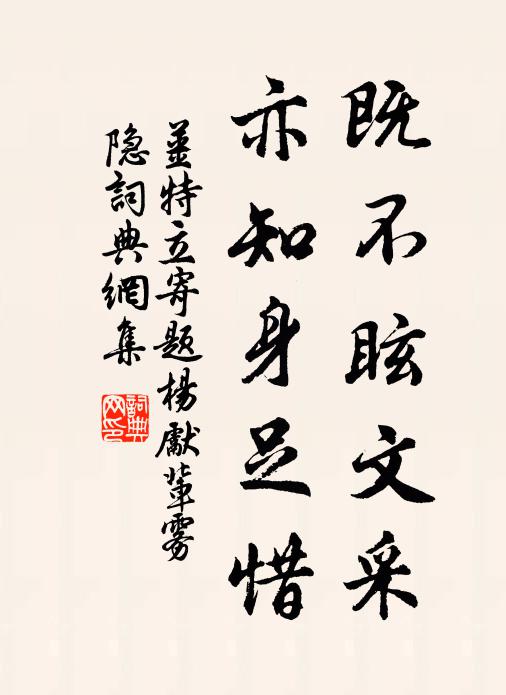 既不眩文采
亦知身足惜
姜特立寄题楊獻輩雾
隐詞典網集
詞典网印